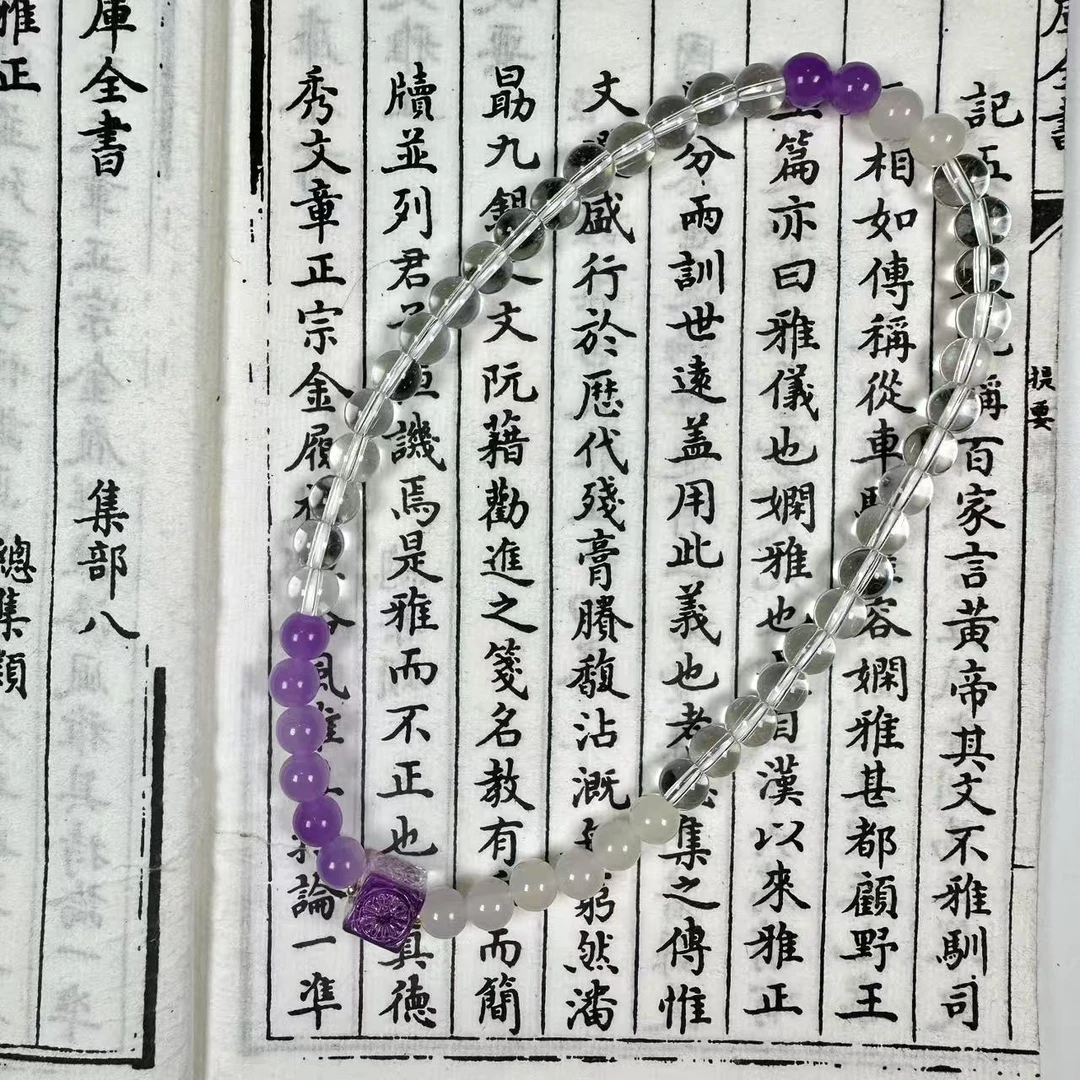 提要
記五稱百家言黃帝其文不雅馴司
相如傳稱從車容嫻雅甚都顧野王
篇亦曰雅儀也嫻雅也自漢以來雅正
分兩訓世遠盖用此義也考集之傳惟
文盛行於歷代殘膏賸馥沾溉窮然潘
勗九錫文阮藉勸進之箋名教有而簡
牘並列君譏焉是雅而不正也真德
秀文章正宗金履風論一準
庫全書 集部八
雅正 總集類